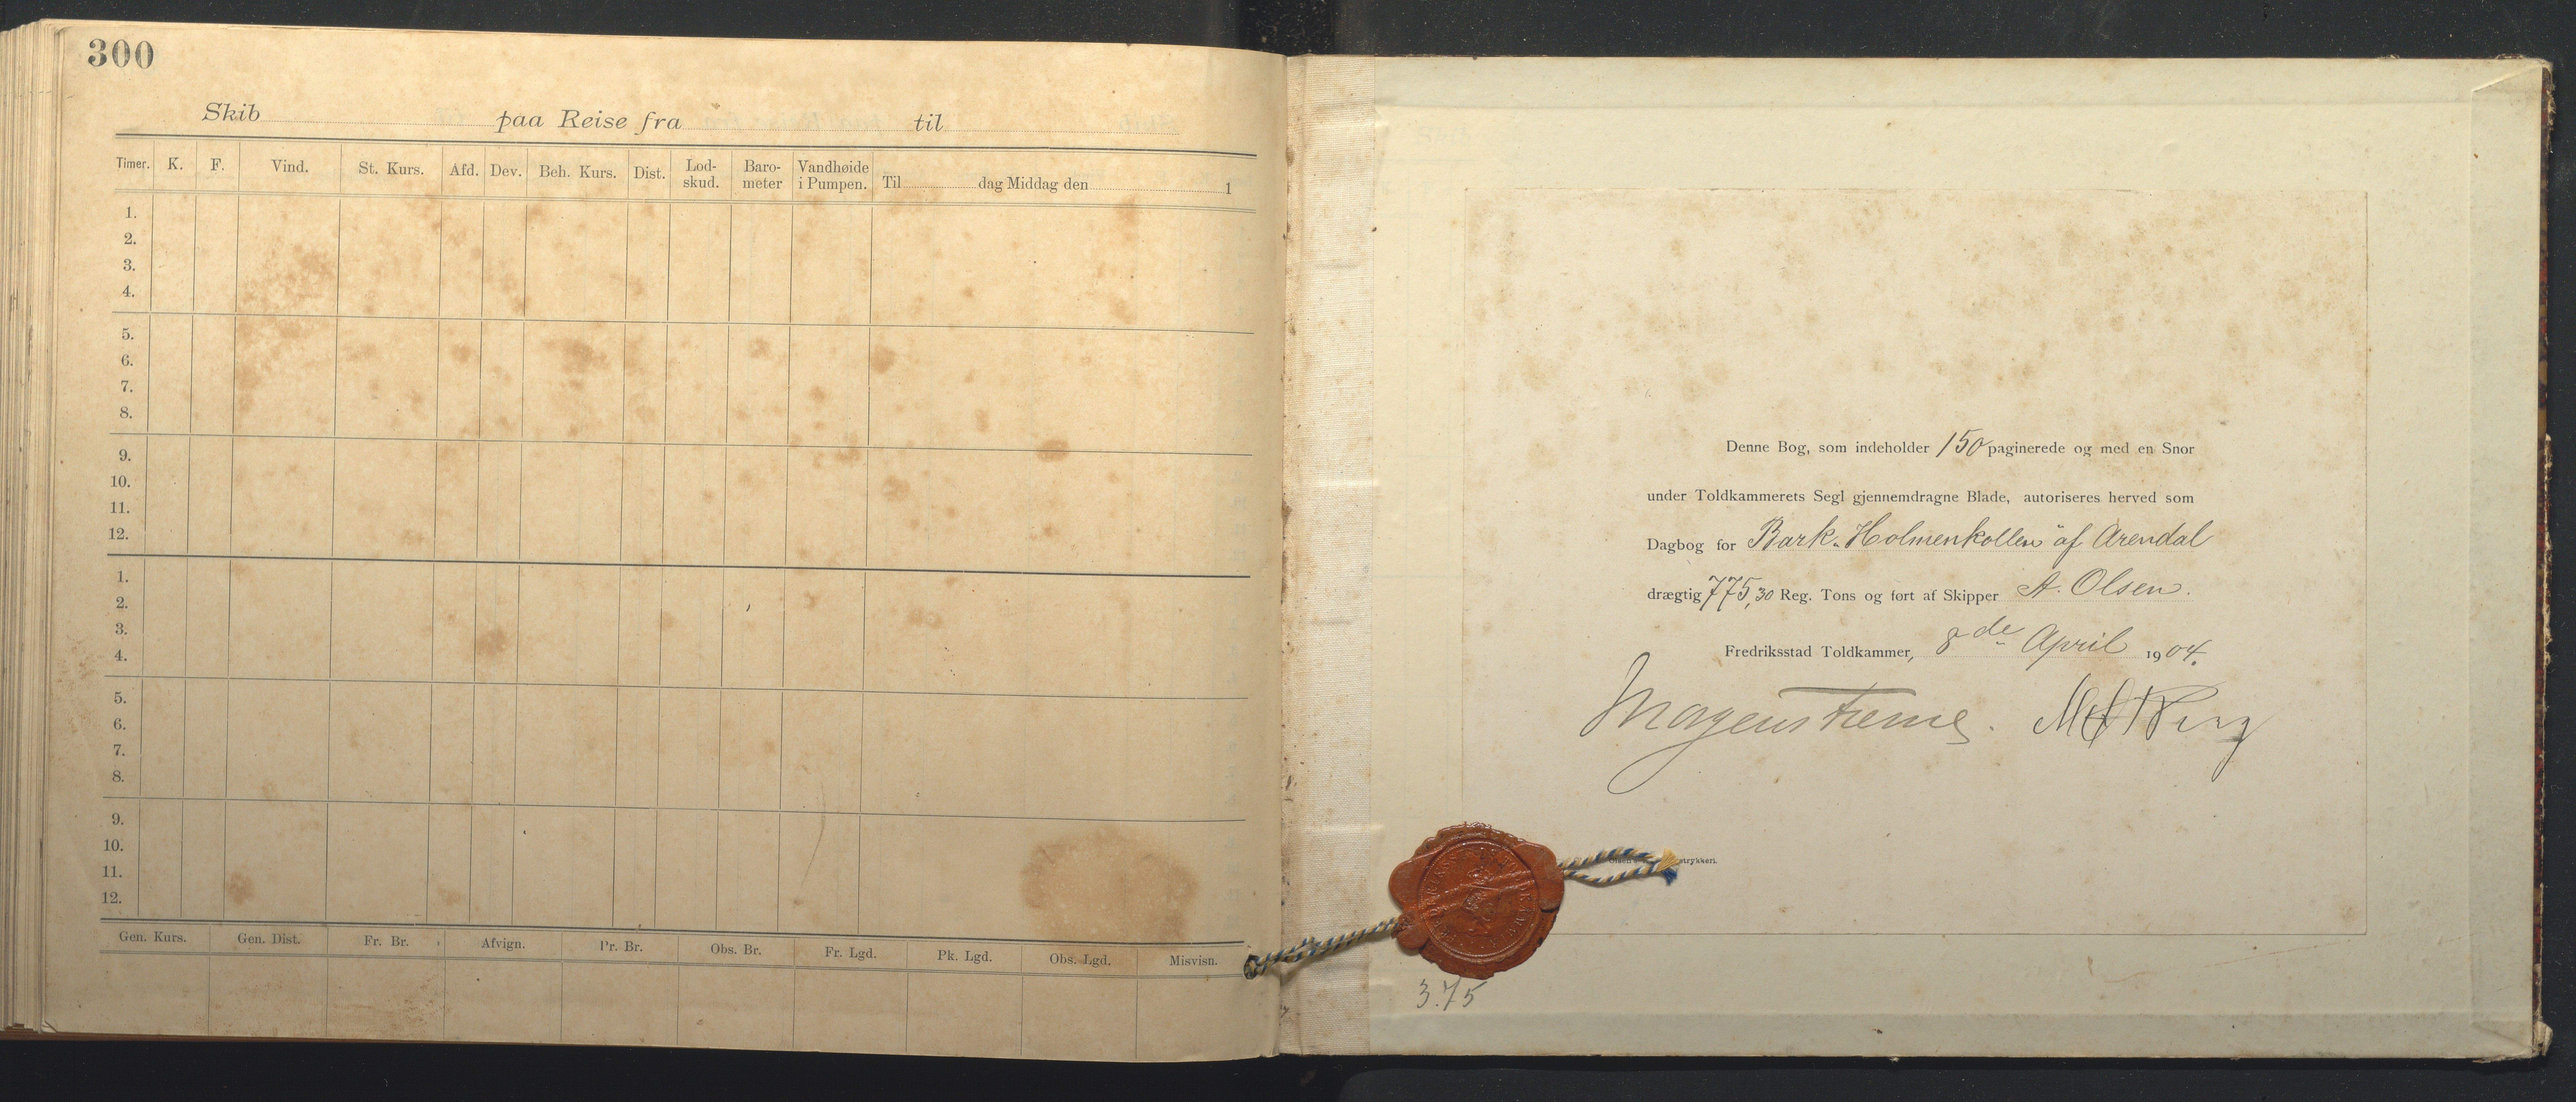 300
Skib paa Reise fra til
Timer. K. F. Vind. St. Kurs. Afd. Dev. Beh. Kurs. Dist. Lod-skud. Baro-meter Vandhøide i Pumpen. Til dag Middag den 1
1.
2.
3.
4.
5.
6.
7.
8.
9.
10.
11.
12.
1.
2.
3.
4.
5.
6.
7.
8.
9.
10.
11.
12.
Gen. Kurs. Gen. Dist. Fr. Br. Afvign. Pr. Br. Obs. Br. Fr. Lgd. Pk. Lgd. Obs. Lgd. Misvisn.
Denne Bog, som indeholder 150 paginerede og med en Snor
under Toldkammerets Segl gjennemdragne Blade, autoriseres herved som
Dagbog for Bark „Holmenkollen" af Arendal
drægtig 775,30 Reg. Tons og ført af Skipper A. Olsen.
Fredriksstad Toldkammer, 8de April 1904.
Morgenstierne.
trykkeri.
3.75